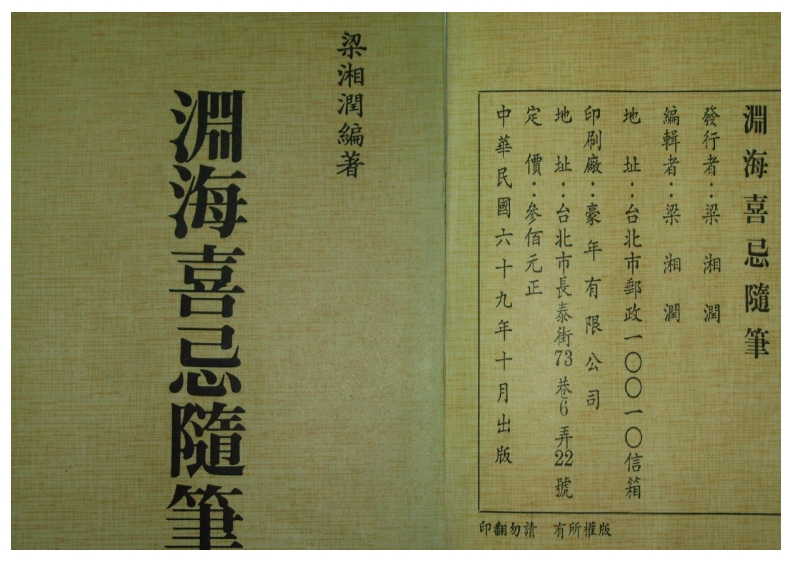 梁湘潤編著
淵海喜忌隨筆
淵海喜忌隨筆
發行者：梁湘潤
編輯者：梁湘潤
地址：台北市郵政一〇〇一〇信箱
印刷廠：豪年有限公司
地址：台北市長泰街73巷6弄22號
定價：參佰元正
中華民國六十九年十月出版
版權所有 請勿翻印